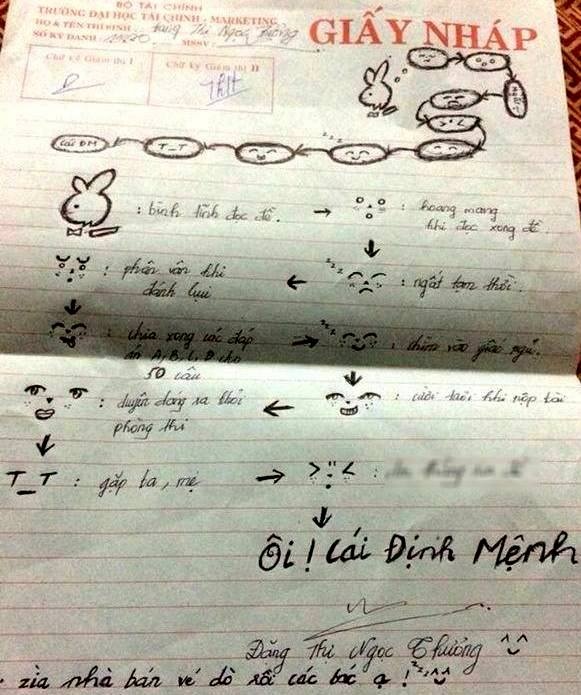 BỘ TÀI CHÍNH
TRƯỜNG ĐẠI HỌC TÀI CHÍNH - MARKETING
HỌ & TÊN THÍ SINH: Đặng Thị Ngọc Thưởng
SỐ KÝ DANH: MSSV:
GIẤY NHÁP
Chữ ký Giám thị I
Chữ ký Giám thị II
> <
T_T
Cái ĐM
zzz
: bình tĩnh đọc đề. → : hoang mang
khi đọc xong đề.
: phân vân khi ← zzz : ngất tạm thời.
đánh lụi
: chia xong các đáp → zzz : chìm vào giấc ngủ.
án A, B, C, D cho
50 câu
: duyên dáng ra khỏi ← : cười tươi khi nộp bài
phòng thi
T_T : gặp ba, mẹ → > < :
Ôi! Cái Định Mệnh
Đặng Thị Ngọc Thưởng ^^
zìa nhà bán vé dò rồi các bác ạ! zzz ^^